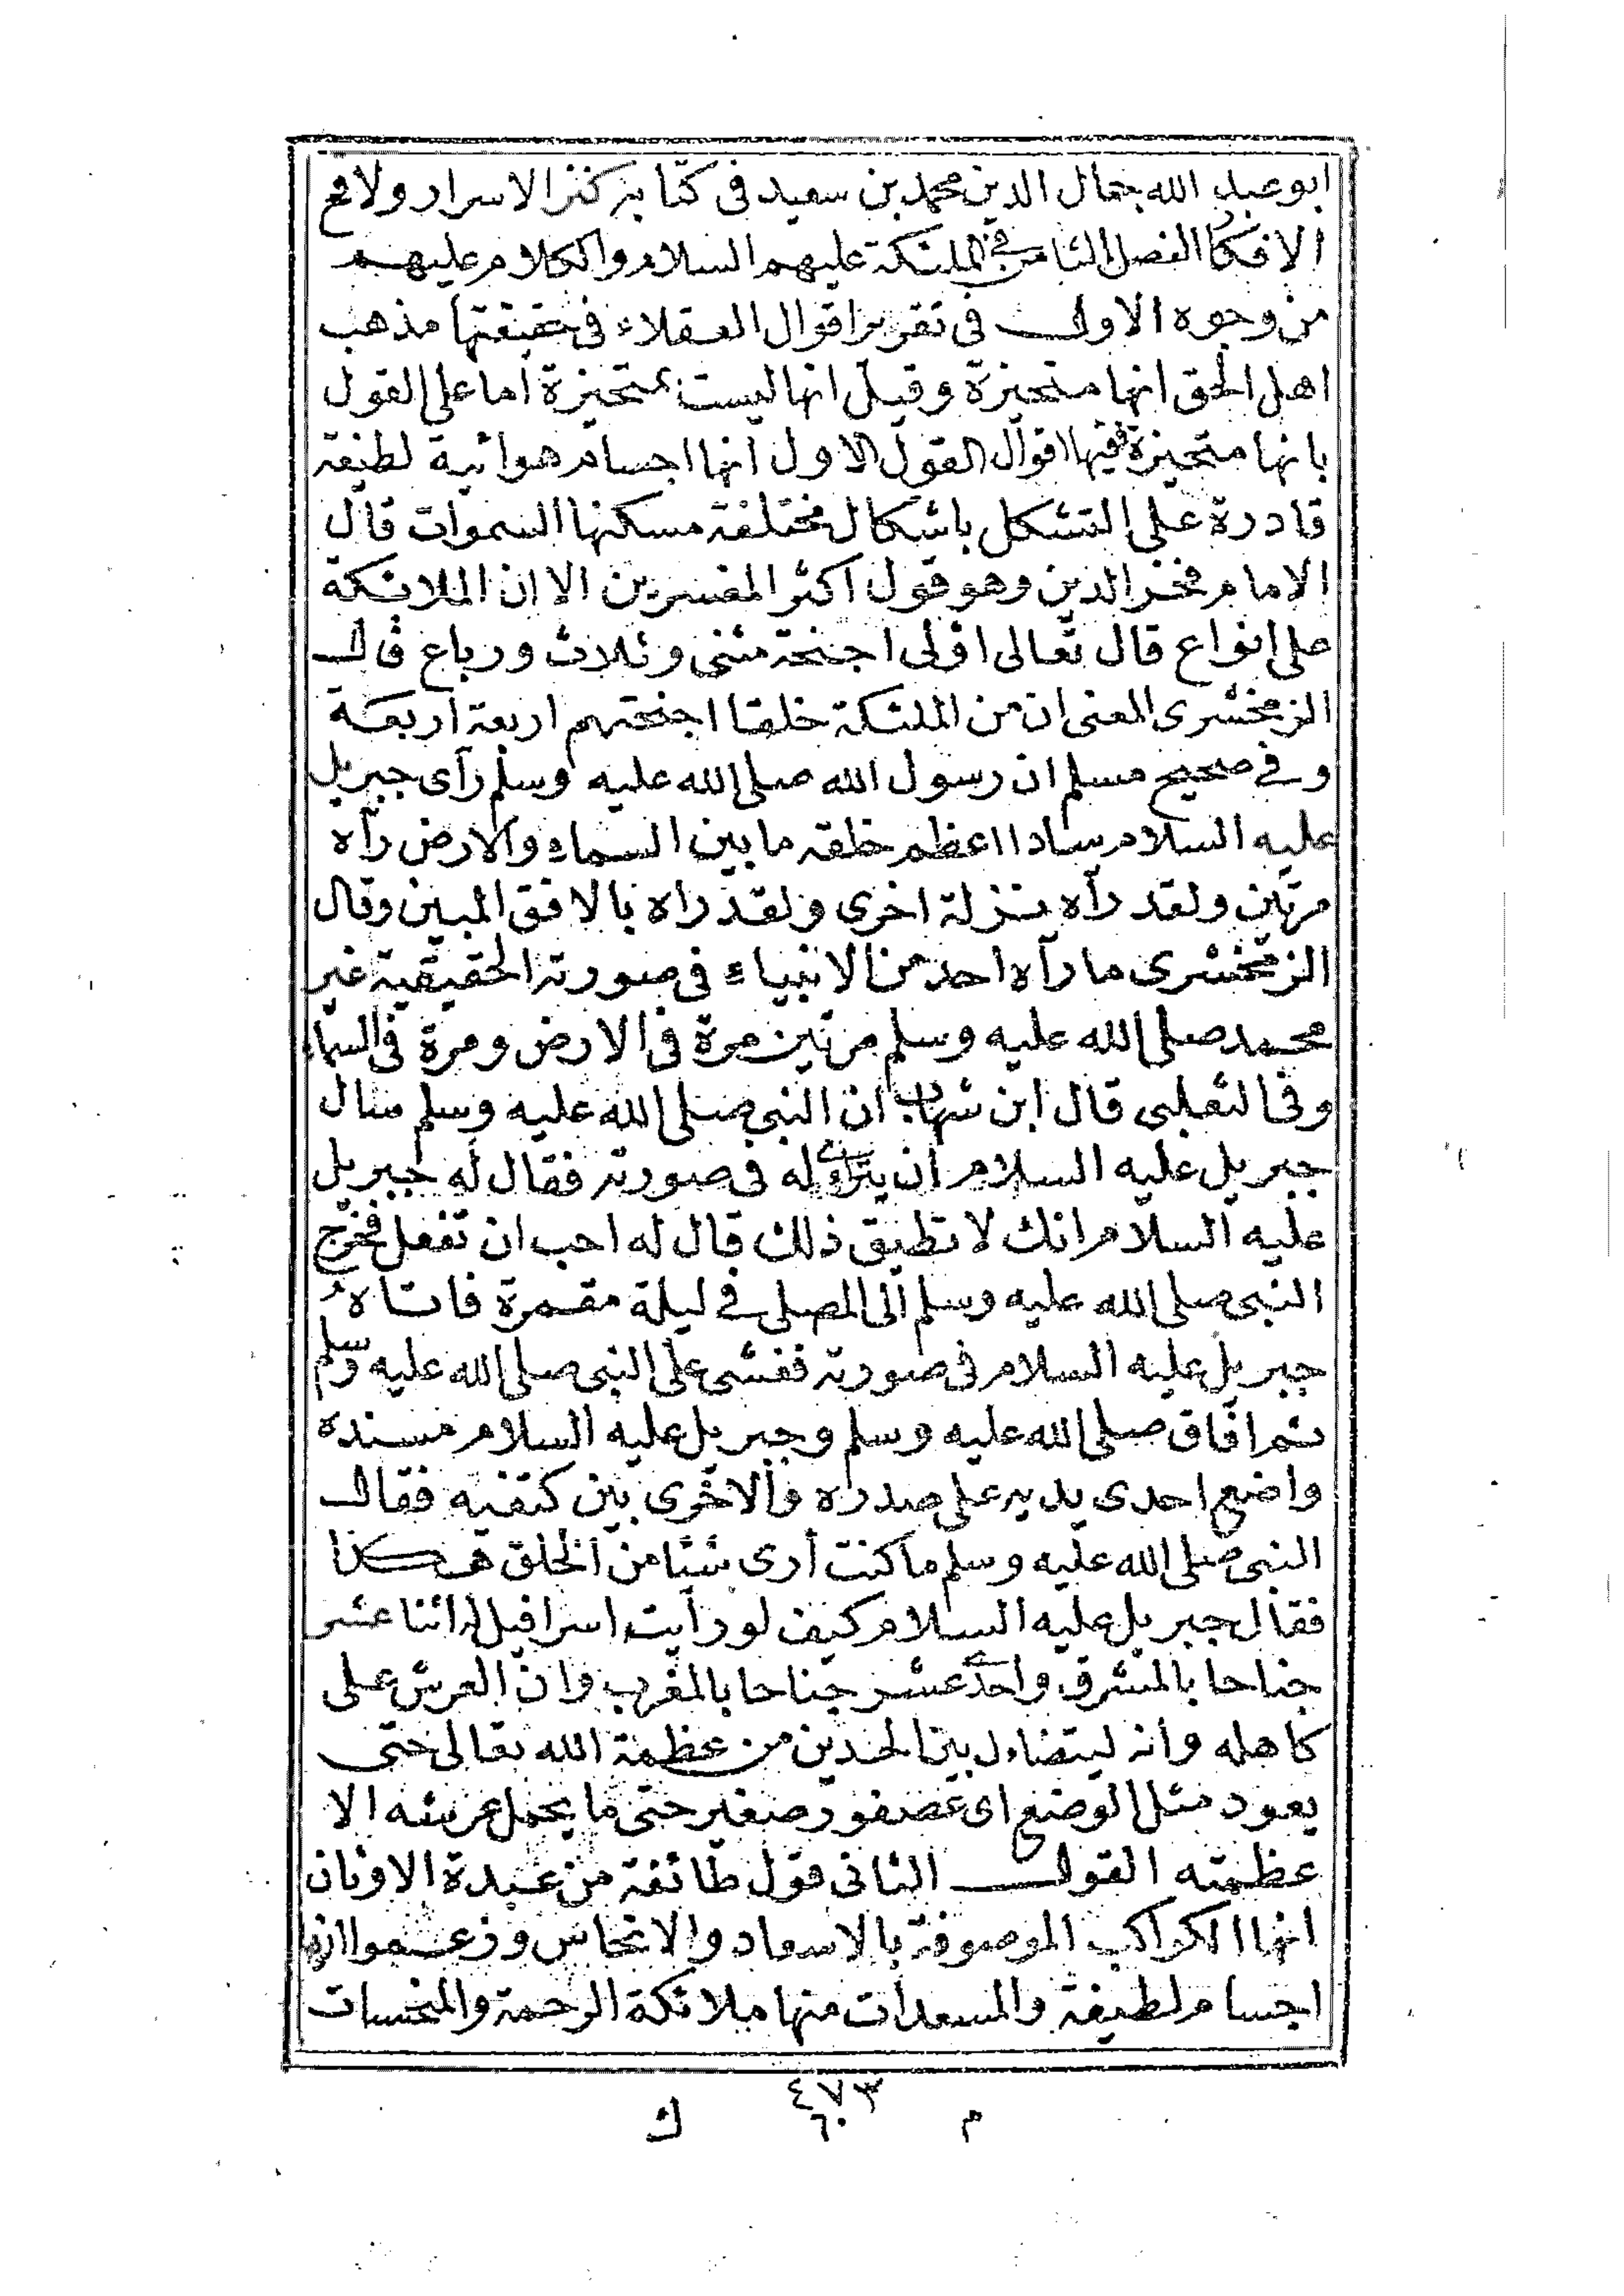 ابو عبد الله جمال الدين محمد بن سعيد فى كتابه كنز الاسرار ولاقح
الافكار الفصل الثامن فى الملئكة عليهم السلام والكلام عليهم
من وجوه الاول فى تقرير اقوال العقلاء فى حقيقتها مذهب
اهل الحق انها متحيزة وقيل انها ليست بمتحيزة أما على القول
بانها متحيزة ففيها اقوال القول الاول انها اجسام هوائية لطيفة
قادرة على التشكل باشكال مختلفة مسكنها السموات قال
الامام فخر الدين وهو قول اكثر المفسرين الا ان الملائكة
على انواع قال تعالى اولى اجنحة مثنى وثلاث ورباع قال
الزمخشرى المعنى ان من الملئكة خلقا اجنحتهم اربعة اربعة
وفى صحيح مسلم ان رسول الله صلى الله عليه وسلم رآى جبريل
عليه السلام سادا اعظم خلقه ما بين السماء والارض رآه
مرتين ولقد رآه نزلة اخرى ولقد راه بالافق المبين وقال
الزمخشرى ما رآه احد من الانبياء فى صورته الحقيقية غير
محمد صلى الله عليه وسلم مرتين مرة فى الارض ومرة فى السماء
وفى الثعلبى قال ابن شهاب ان النبى صلى الله عليه وسلم سال
جبريل عليه السلام ان يتراءى له فى صورته فقال له جبريل
عليه السلام انك لا تطيق ذلك قال له احب ان تفعل فخرج
النبى صلى الله عليه وسلم الى المصلى فى ليلة مقمرة فاتاه
جبريل عليه السلام فى صورته فغشى على النبى صلى الله عليه وسلم
ثم افاق صلى الله عليه وسلم وجبريل عليه السلام مسنده
واضع احدى يديه على صدره والاخرى بين كتفيه فقال
النبى صلى الله عليه وسلم ما كنت أرى شيئا من الخلق هكذا
فقال جبريل عليه السلام كيف لو رأيت اسرافيل له اثنا عشر
جناحا بالمشرق واحد عشر جناحا بالمغرب وان العرش على
كاهله وانه ليتضاءل بين الحدين من عظمة الله تعالى حتى
يعود مثل الوضع اى عصفور صغير حتى ما يحمل عرشه الا
عظمته القول الثانى قول طائفة من عبدة الاوثان
انها الكواكب الموصوفة بالاسعاد والانحاس وزعموا انها
اجسام لطيفة والمسعدات منها ملائكة الرحمة والمنحسات
٤٧٣
م ٦٠ ك